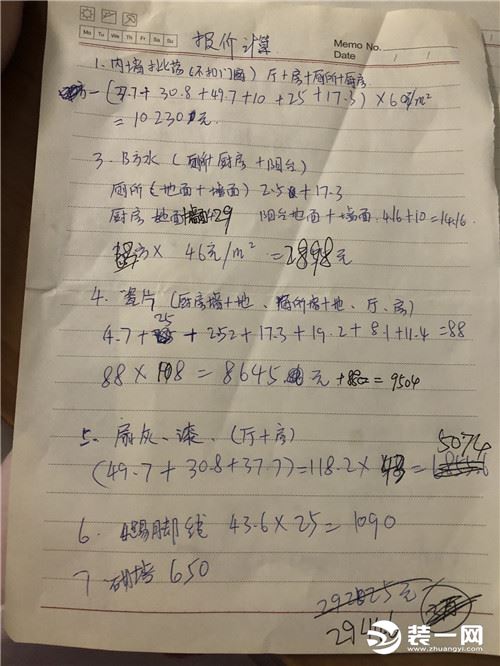 Mo Tu We Th Fr Sa Su
报价计算
Memo No.
Date / /
1、内墙批荡(不扣门窗) 厅+房+厕所+厨房
(37.7+30.8+49.7+10+25+17.3)×60元/m²
=10230元
3、防水(厕所厨房+阳台)
厕所(地面+墙面)25+17.3
厨房地面 4.29 阳台地面+墙面.4.16+10=14.16
× 46元/m²=2898元
4、瓷片(厨房墙+地、厕所墙+地、厅、房)
25
4.7+ + 2.52+17.3+19.2+8.1+11.4=88
88×108=8645元+880=9504
5、扇灰、漆、(厅+房)
5074
(49.7+30.8+37.7)=118.2×43=
6、踢脚线 43.6×25=1090
7、砌墙 650
元
装一网
www.zhuangyi.com